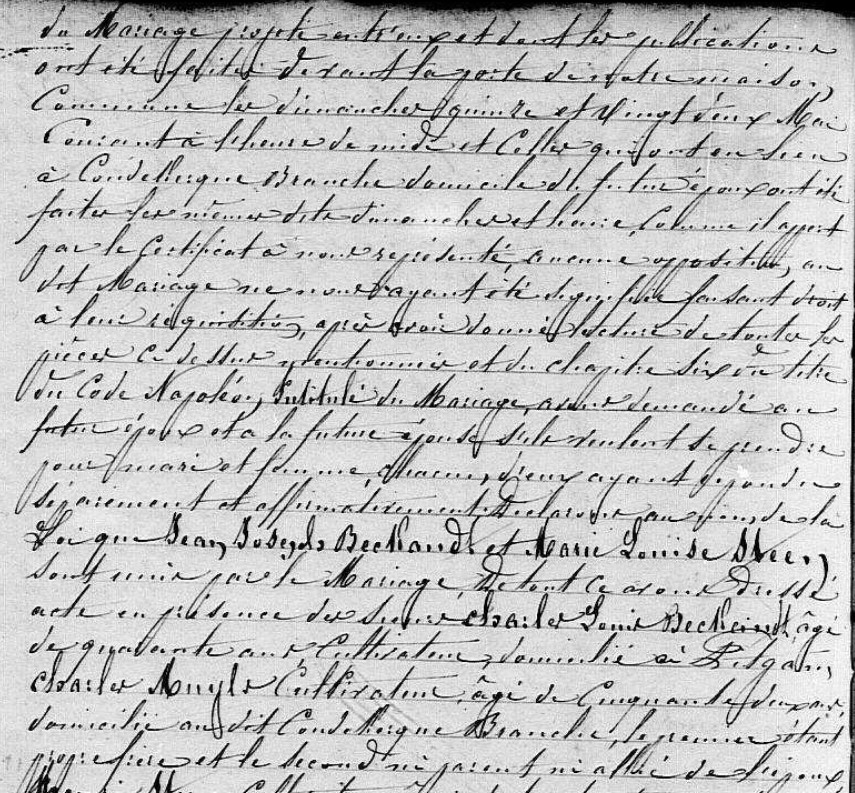 du Mariage projeté entr'eux et dont les publications
ont été faites devant la porte de notre maison
Commune les dimanches quinze et vingt deux Mai
Courant à l'heure de midi et Celles qui ont eu lieu
à Coudekerque Branche domicile du futur époux ont été
faites les mêmes dits dimanches et heure, Comme il appert
par le Certificat à nous représenté, aucune opposition au
dit Mariage ne nous ayant été signifiée faisant droit
à leur réquisition, après avoir donné lecture de toutes les
pièces ci dessus mentionnées et du chapitre six du titre
du Code Napoléon, Intitulé du Mariage, avons demandé au
futur époux et a la future épouse s'ils veulent se prendre
pour mari et femme, chacun d'eux ayant répondu
séparément et affirmativement Déclarons au nom de la
Loi que Jean Joseph Beckandt et Marie Louise
sont unis par le Mariage, De tout ce avons Dressé
acte en présence des Sieurs Charles Louis Beckandt, âgé
de quarante ans, Cultivateur, domicilié à Pitgam,
Charles Muyls Cultivateur, âgé de Cinquante deux ans,
domicilié au dit Coudekerque Branche, le premier étant
propre frère et le second ni parent ni allié de l'époux